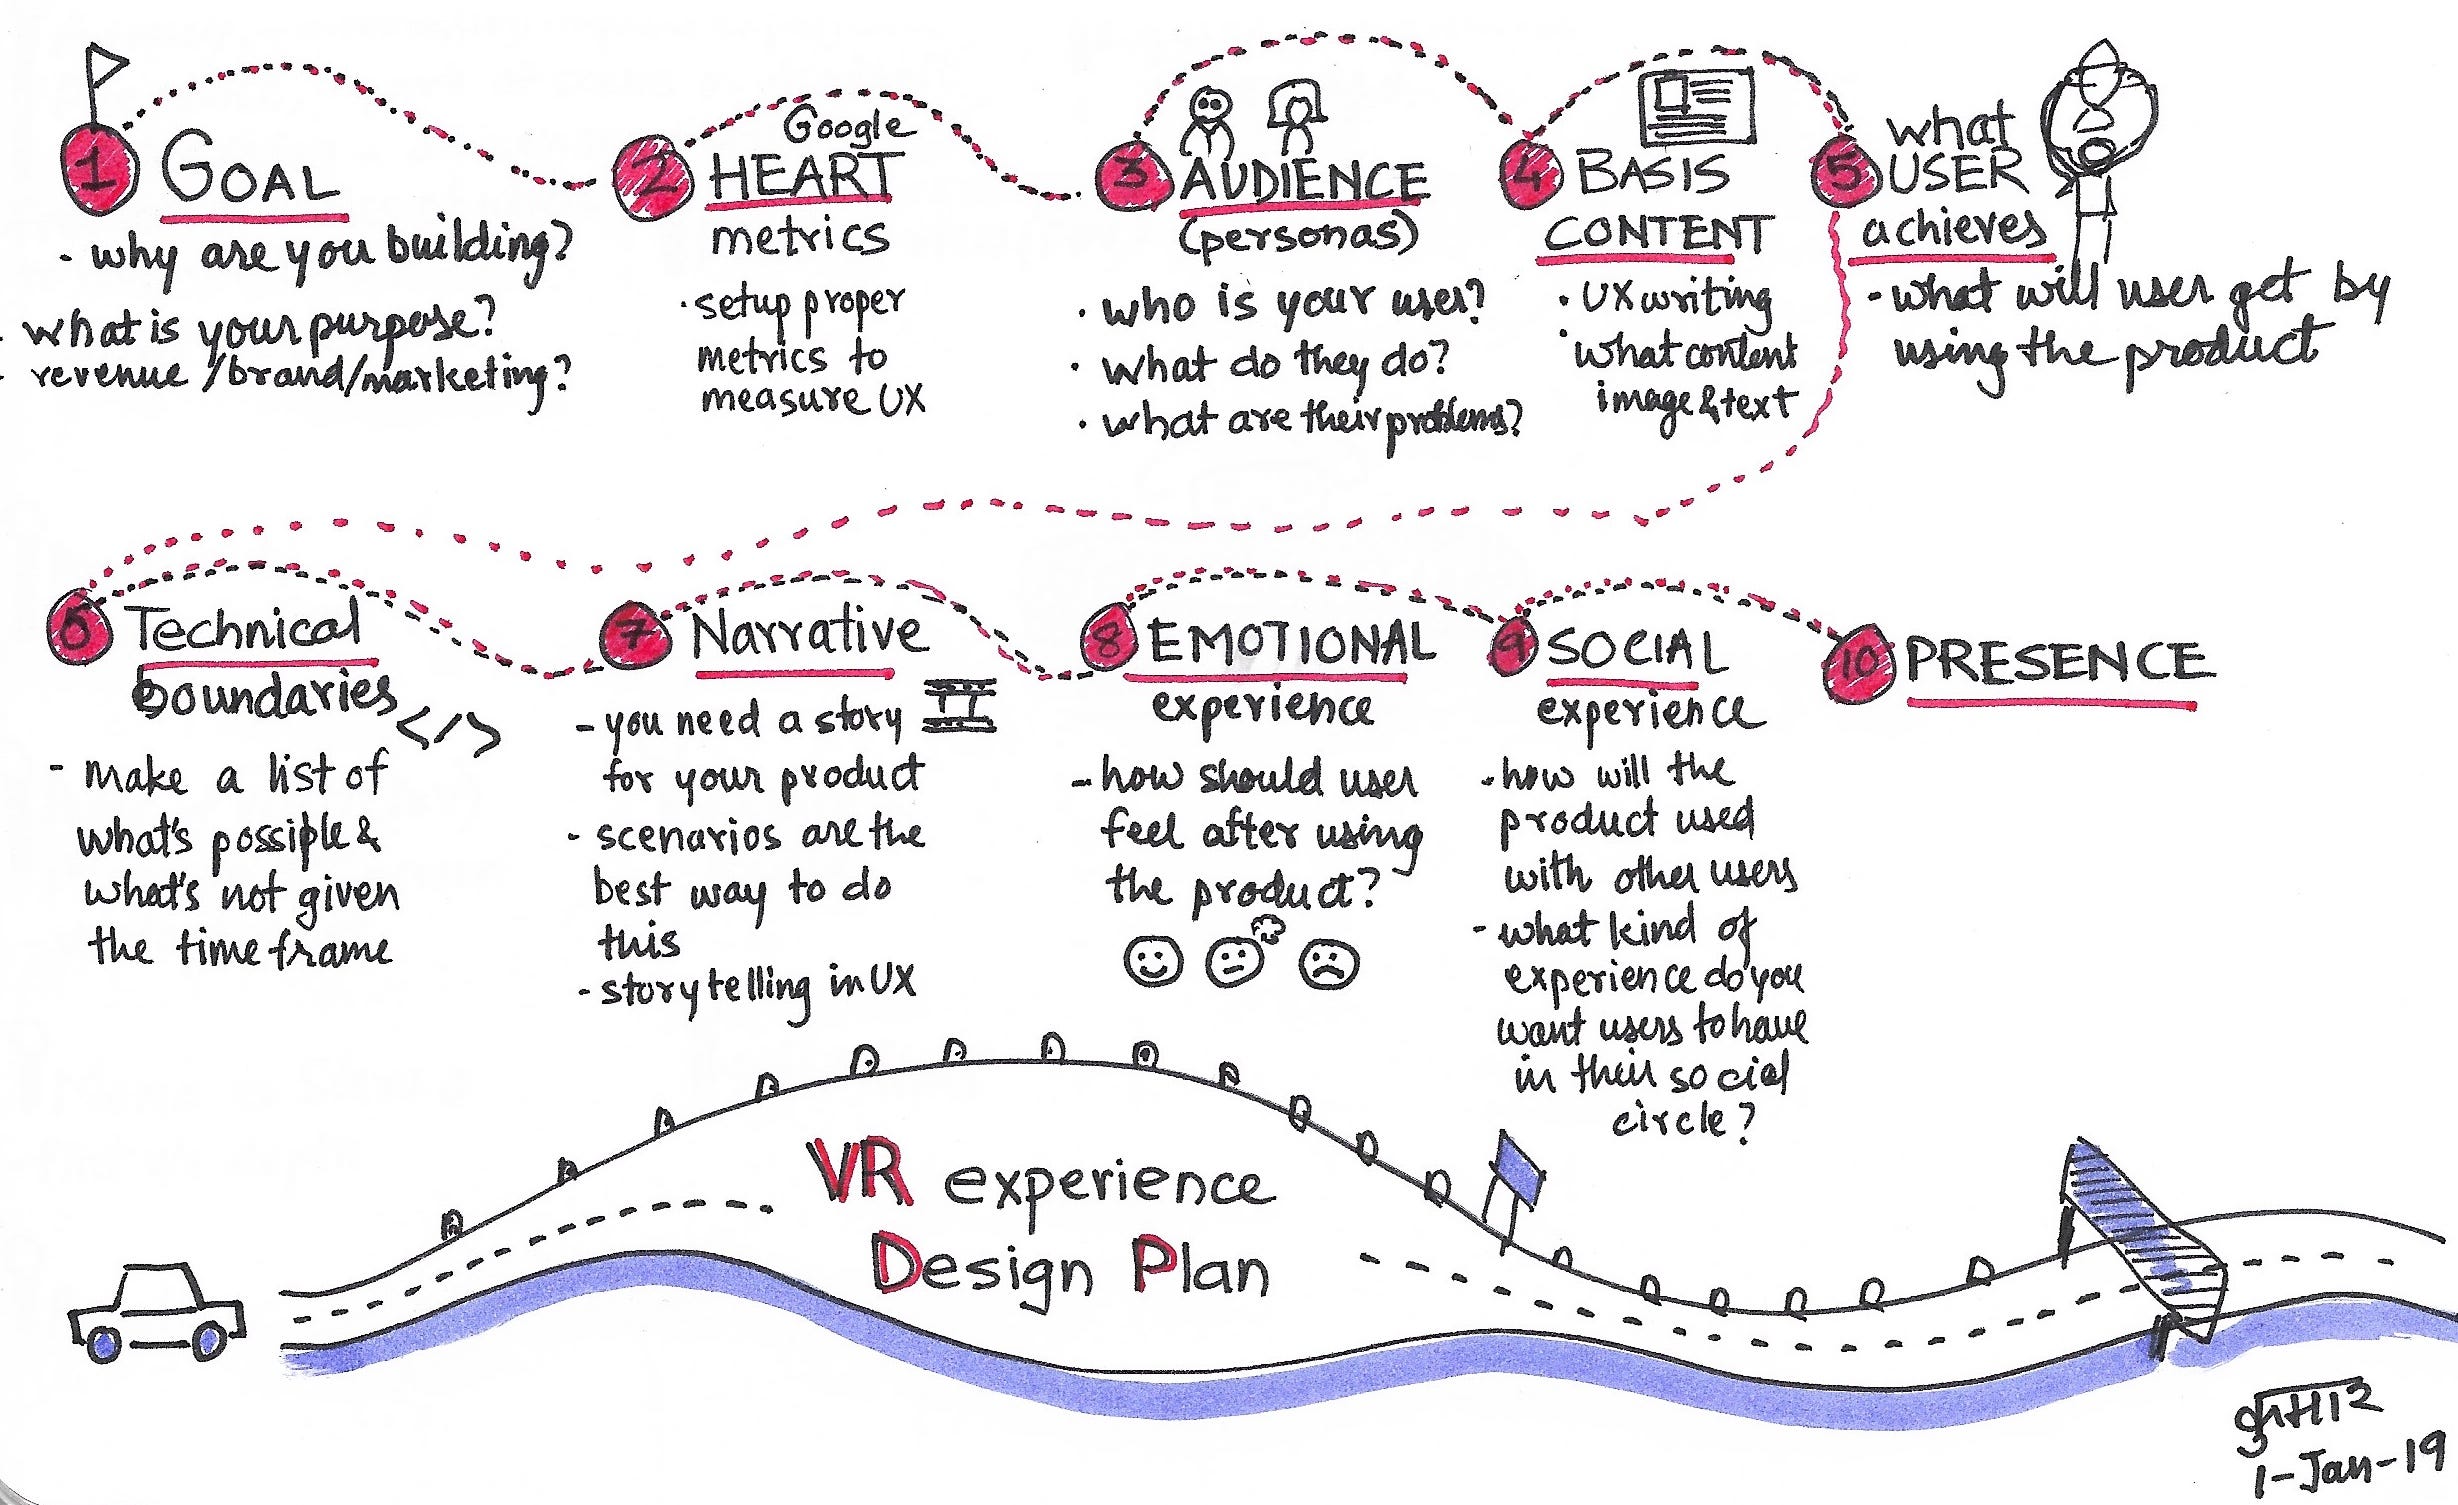 1 GOAL
- why are you building?
- what is your purpose?
- revenue/brand/marketing?
2 Google
HEART
metrics
· setup proper
metrics to
measure UX
3 AUDIENCE
(personas)
· who is your user?
· what do they do?
· what are their problems?
4 BASIS
CONTENT
· UX writing
· what content
image & text
5 what
USER
achieves
- what will user get by
using the product
6 Technical
boundaries
</>
- make a list of
what's possible &
what's not given
the time frame
7 Narrative
- you need a story
for your product
- scenarios are the
best way to do
this
- storytelling in UX
8 EMOTIONAL
experience
- how should user
feel after using
the product?
9 SOCIAL
experience
- how will the
product used
with other users
- what kind of
experience do you
want users to have
in their social
circle?
10 PRESENCE
VR experience
Design Plan
1-Jan-19